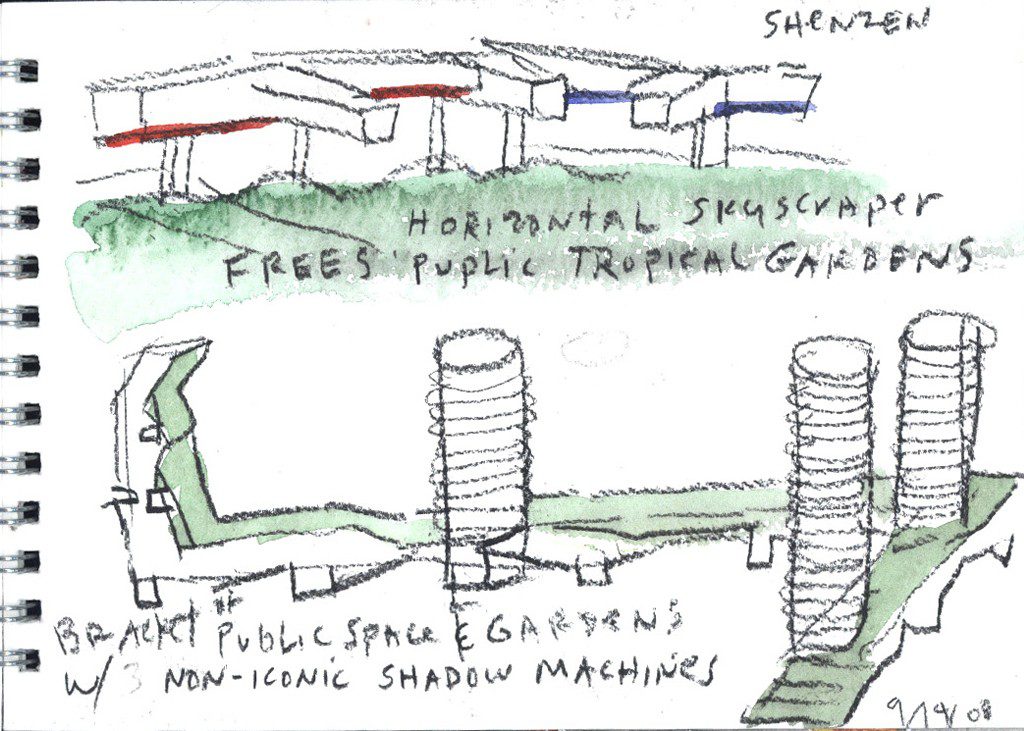 SHENZEN
HORIZONTAL SKYSCRAPER
FREES PUPLIC TROPICAL GARDENS
BRACKET PUBLIC SPACE & GARDENS
W/ 3 NON-ICONIC SHADOW MACHINES